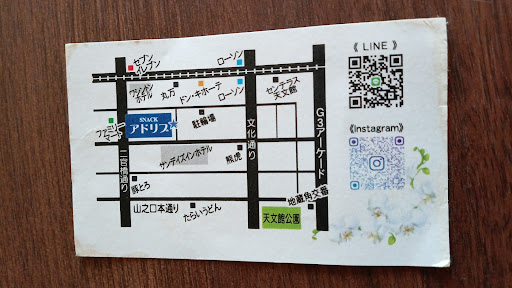 《 LINE 》
セブン
イレブン
ローソン
ワシントン
ホテル
丸万
ドン・キホーテ
ローソン
センテラス
天文館
ファミリー
マート
SNACK
アドリブ
駐輪場
二官橋通り
文化通り
G3アーケード
《Instagram》
サンデイズインホテル
熊虎
豚とろ
地蔵角交番
山之口本通り
たらいうどん
天文館公園